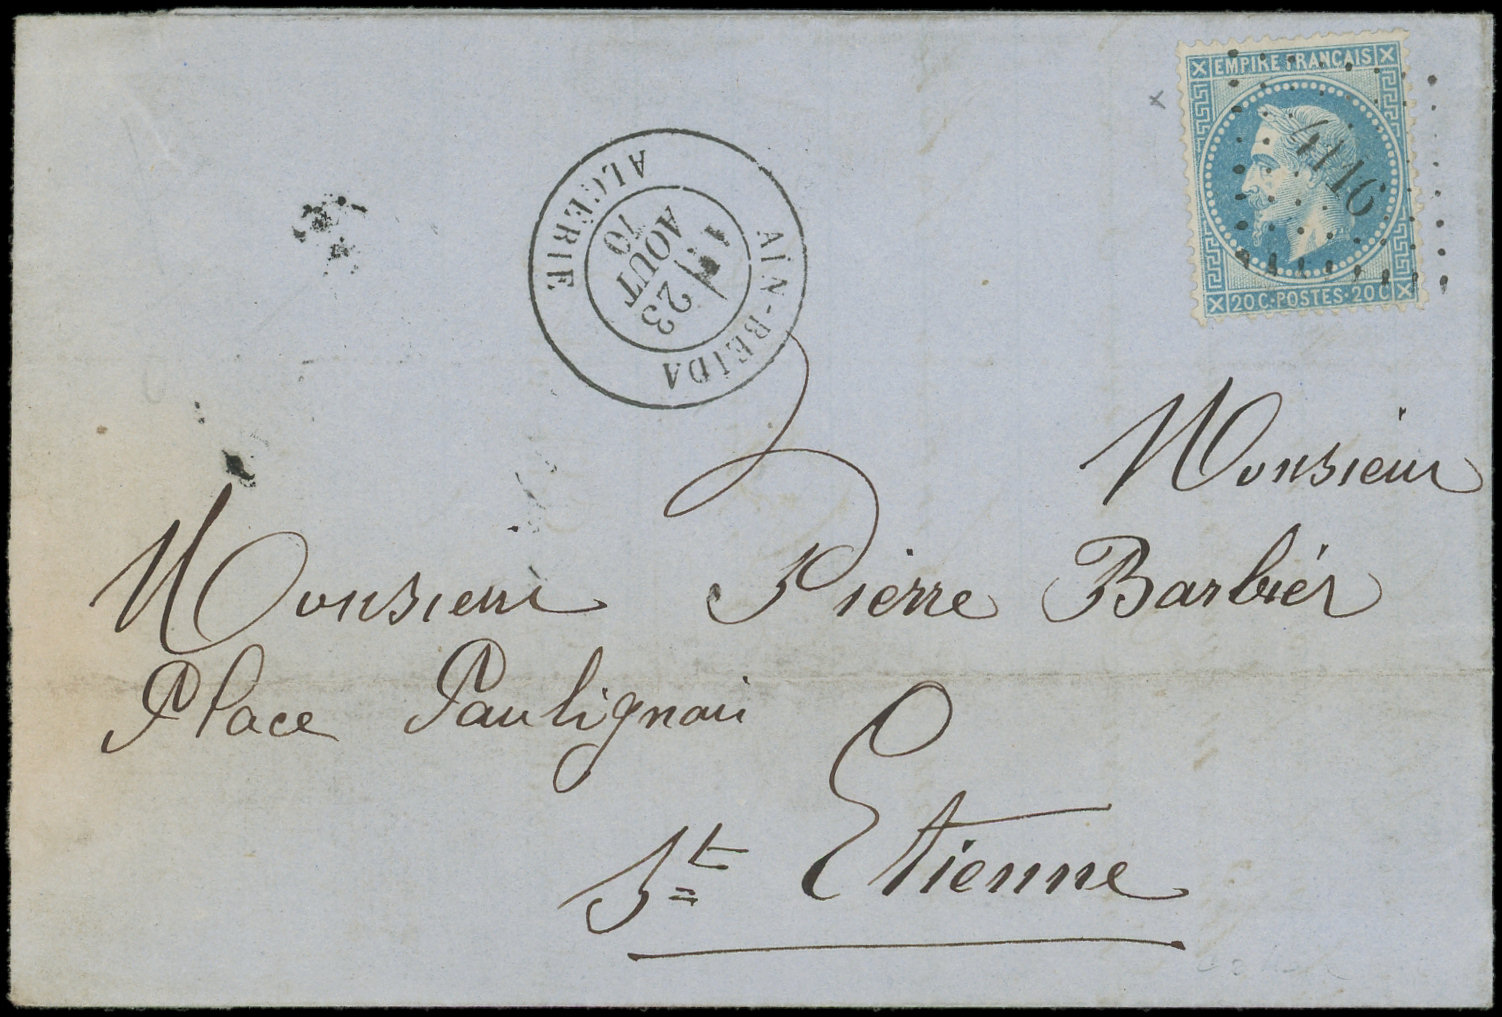 EMPIRE FRANÇAIS
4146
20 C·POSTES·20 C
AÏN-BEIDA
23
AOUT
70
ALGÉRIE
Monsieur
Monsieur Pierre Barbier
Place
St Etienne